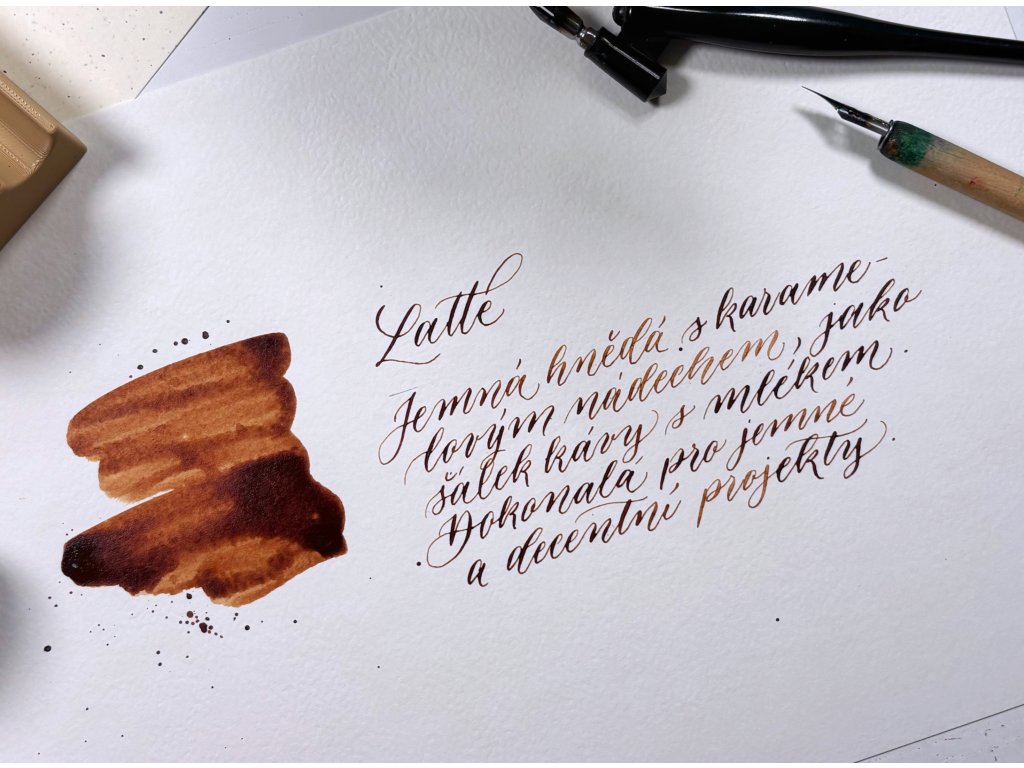 Latte
Jemná hnědá s karame-
lovým nádechem, jako
šálek kávy s mlékem.
Dokonalá pro jemné
a decentní projekty.